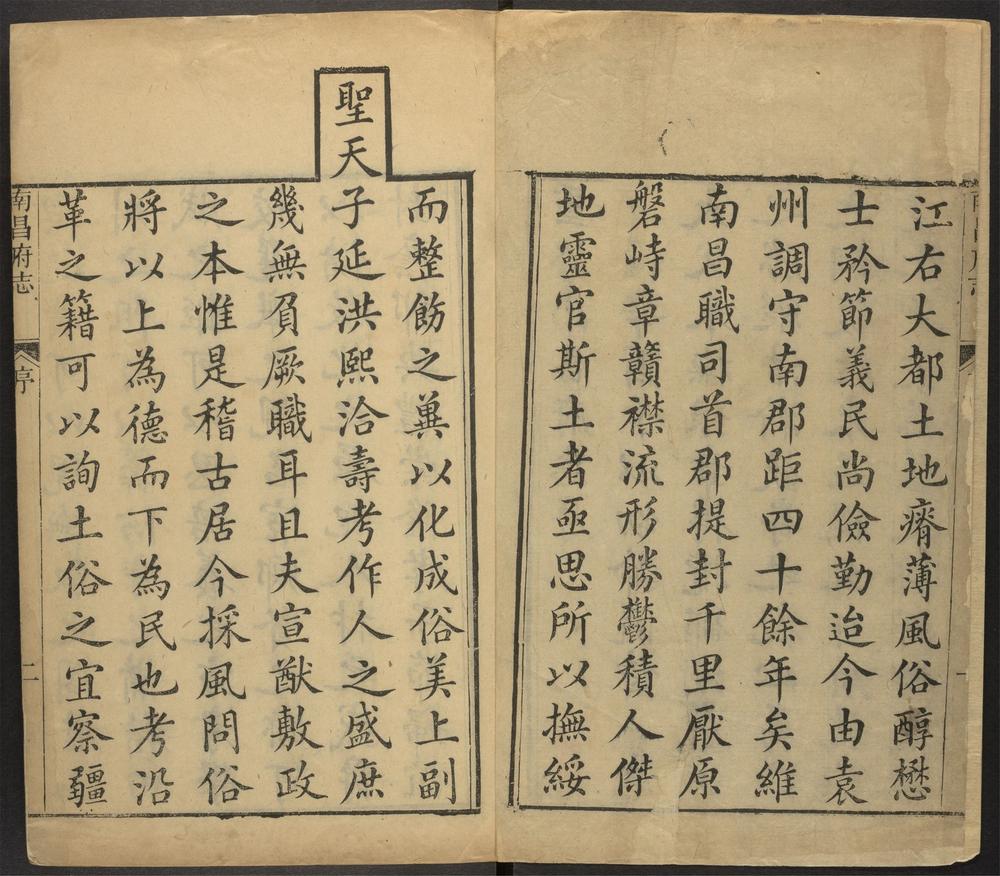 江右大都土地瘠薄風俗醇懋
士矜節義民尚儉勤迨今由袁
州調守南郡距四十餘年矣維
南昌職司首郡提封千里厭原
磐峙章贛襟流形勝鬱積人傑
地靈官斯土者亟思所以撫綏
而整飭之蘡以化成俗美上副
聖天子延洪熙洽壽考作人之盛庶
幾無負厥職耳且夫宣猷敷政
之本惟是稽古居今採風問俗
將以上為德而下為民也考沿
革之籍可以詢土俗之宜察疆
南昌府志
序
二